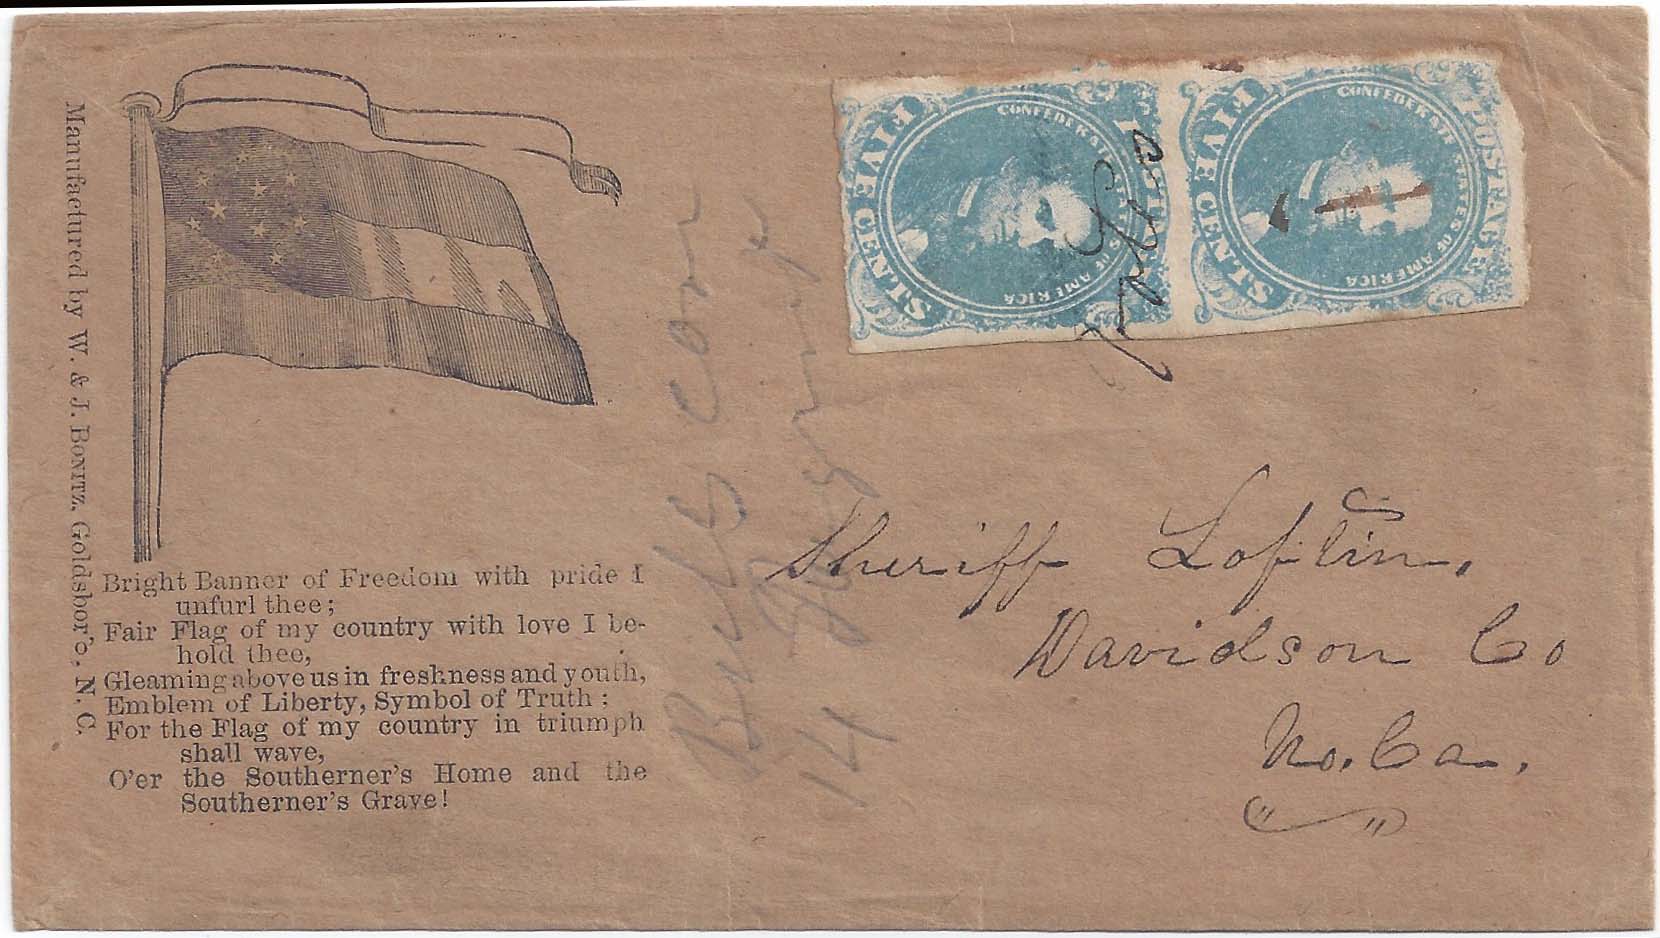 Manufactured by W. & J. BONITZ, Goldsboro, N. C.
Bright Banner of Freedom with pride I
unfurl thee;
Fair Flag of my country with love I be-
hold thee,
Gleaming above us in freshness and youth,
Emblem of Liberty, Symbol of Truth;
For the Flag of my country in triumph
shall wave,
O'er the Southerner's Home and the
Southerner's Grave!
14
POSTAGE
CONFEDERATE STATES OF AMERICA
FIVE CENTS
POSTAGE
CONFEDERATE STATES OF AMERICA
FIVE CENTS
Sheriff Loftin,
Davidson Co
No. Ca.